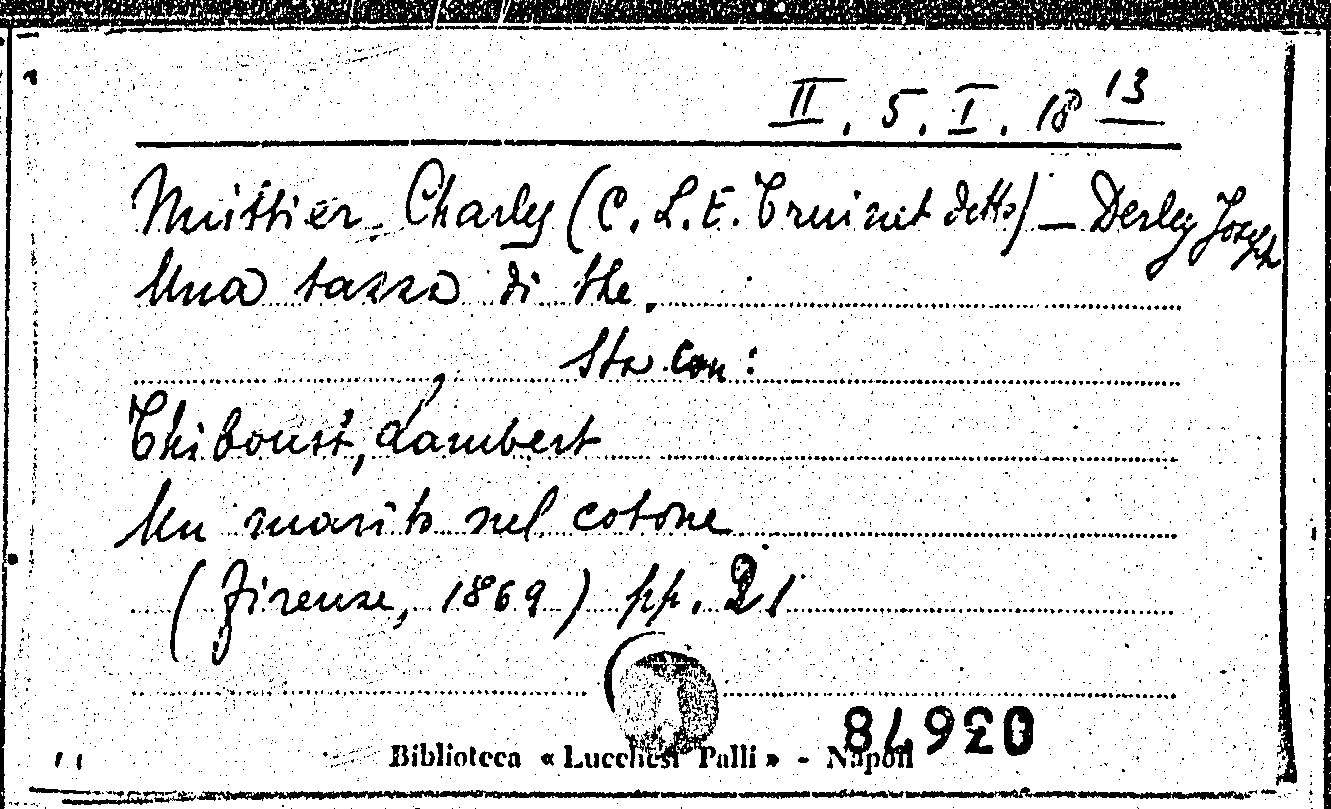 II. 5. I. 18 13
Nuittier, Charles (C. L. E. Truinet detto) — Derley Joseph
Una tazza di the.
Sta con:
Thiboust, Lambert
Un marito nel cotone
(Firenze, 1869) pp. 21
Biblioteca « Lucchesi Palli » - Napoli